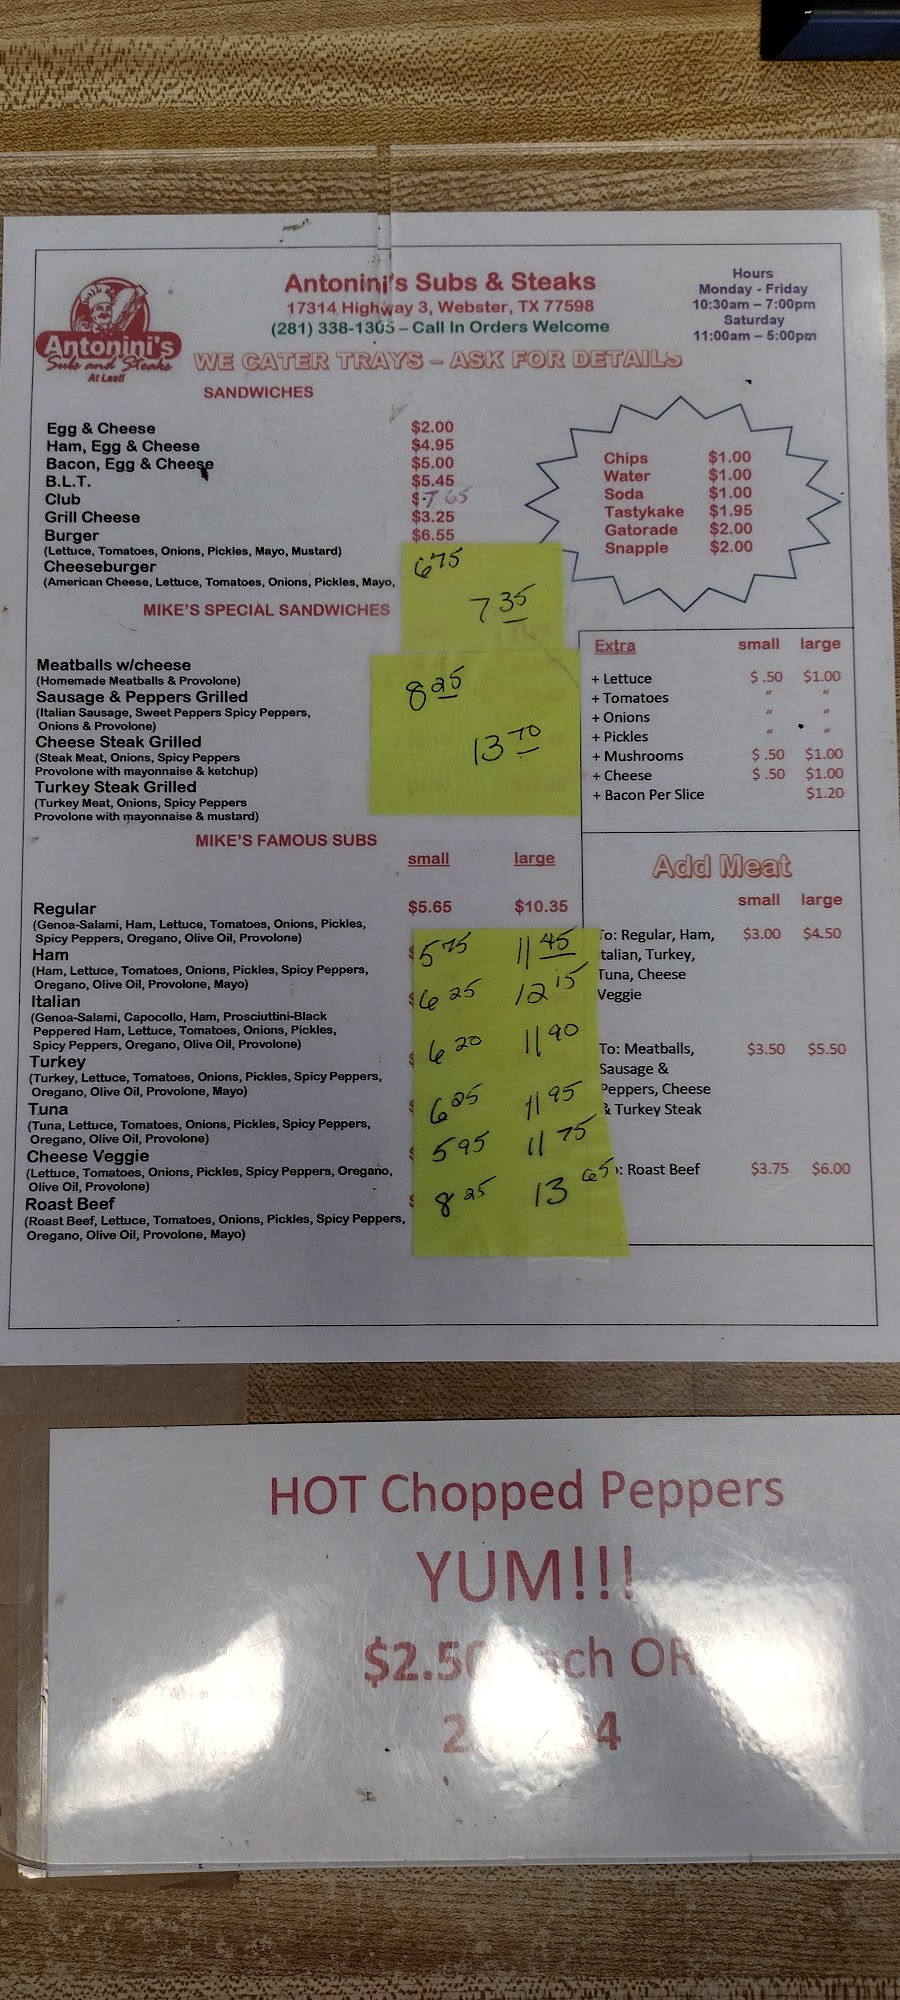 Antonini's
Subs and Steaks
At Last!
Antonini's Subs & Steaks
17314 Highway 3, Webster, TX 77598
(281) 338-1305 – Call In Orders Welcome
Hours
Monday - Friday
10:30am – 7:00pm
Saturday
11:00am – 5:00pm
WE CATER TRAYS – ASK FOR DETAILS
SANDWICHES
Egg & Cheese $2.00
Ham, Egg & Cheese $4.95
Bacon, Egg & Cheese $5.00
B.L.T. $5.45
Club $ 7 65
Grill Cheese $3.25
Burger $6.55
(Lettuce, Tomatoes, Onions, Pickles, Mayo, Mustard)
Cheeseburger 6 75
(American Cheese, Lettuce, Tomatoes, Onions, Pickles, Mayo,
7 35
Chips $1.00
Water $1.00
Soda $1.00
Tastykake $1.95
Gatorade $2.00
Snapple $2.00
MIKE'S SPECIAL SANDWICHES
Meatballs w/cheese 8 25
(Homemade Meatballs & Provolone)
Sausage & Peppers Grilled
(Italian Sausage, Sweet Peppers Spicy Peppers,
Onions & Provolone)
Cheese Steak Grilled 13 70
(Steak Meat, Onions, Spicy Peppers
Provolone with mayonnaise & ketchup)
Turkey Steak Grilled
(Turkey Meat, Onions, Spicy Peppers
Provolone with mayonnaise & mustard)
Extra small large
+ Lettuce $ .50 $1.00
+ Tomatoes " "
+ Onions " "
+ Pickles " "
+ Mushrooms $ .50 $1.00
+ Cheese $ .50 $1.00
+ Bacon Per Slice $1.20
MIKE'S FAMOUS SUBS
small large
Regular $5.65 $10.35
(Genoa-Salami, Ham, Lettuce, Tomatoes, Onions, Pickles,
Spicy Peppers, Oregano, Olive Oil, Provolone)
Ham $ 5 75 11 45
(Ham, Lettuce, Tomatoes, Onions, Pickles, Spicy Peppers,
Oregano, Olive Oil, Provolone, Mayo)
Italian $ 6 25 12 15
(Genoa-Salami, Capocollo, Ham, Prosciuttini-Black
Peppered Ham, Lettuce, Tomatoes, Onions, Pickles,
Spicy Peppers, Oregano, Olive Oil, Provolone)
Turkey $ 6 20 11 90
(Turkey, Lettuce, Tomatoes, Onions, Pickles, Spicy Peppers,
Oregano, Olive Oil, Provolone, Mayo)
Tuna $ 6 25 11 95
(Tuna, Lettuce, Tomatoes, Onions, Pickles, Spicy Peppers,
Oregano, Olive Oil, Provolone)
Cheese Veggie $ 5 95 11 75
(Lettuce, Tomatoes, Onions, Pickles, Spicy Peppers, Oregano,
Olive Oil, Provolone)
Roast Beef $ 8 25 13 65
(Roast Beef, Lettuce, Tomatoes, Onions, Pickles, Spicy Peppers,
Oregano, Olive Oil, Provolone, Mayo)
Add Meat
small large
To: Regular, Ham, $3.00 $4.50
Italian, Turkey,
Tuna, Cheese
Veggie
To: Meatballs, $3.50 $5.50
Sausage &
Peppers, Cheese
& Turkey Steak
: Roast Beef $3.75 $6.00
HOT Chopped Peppers
YUM!!!
$2.50 OR
2 4